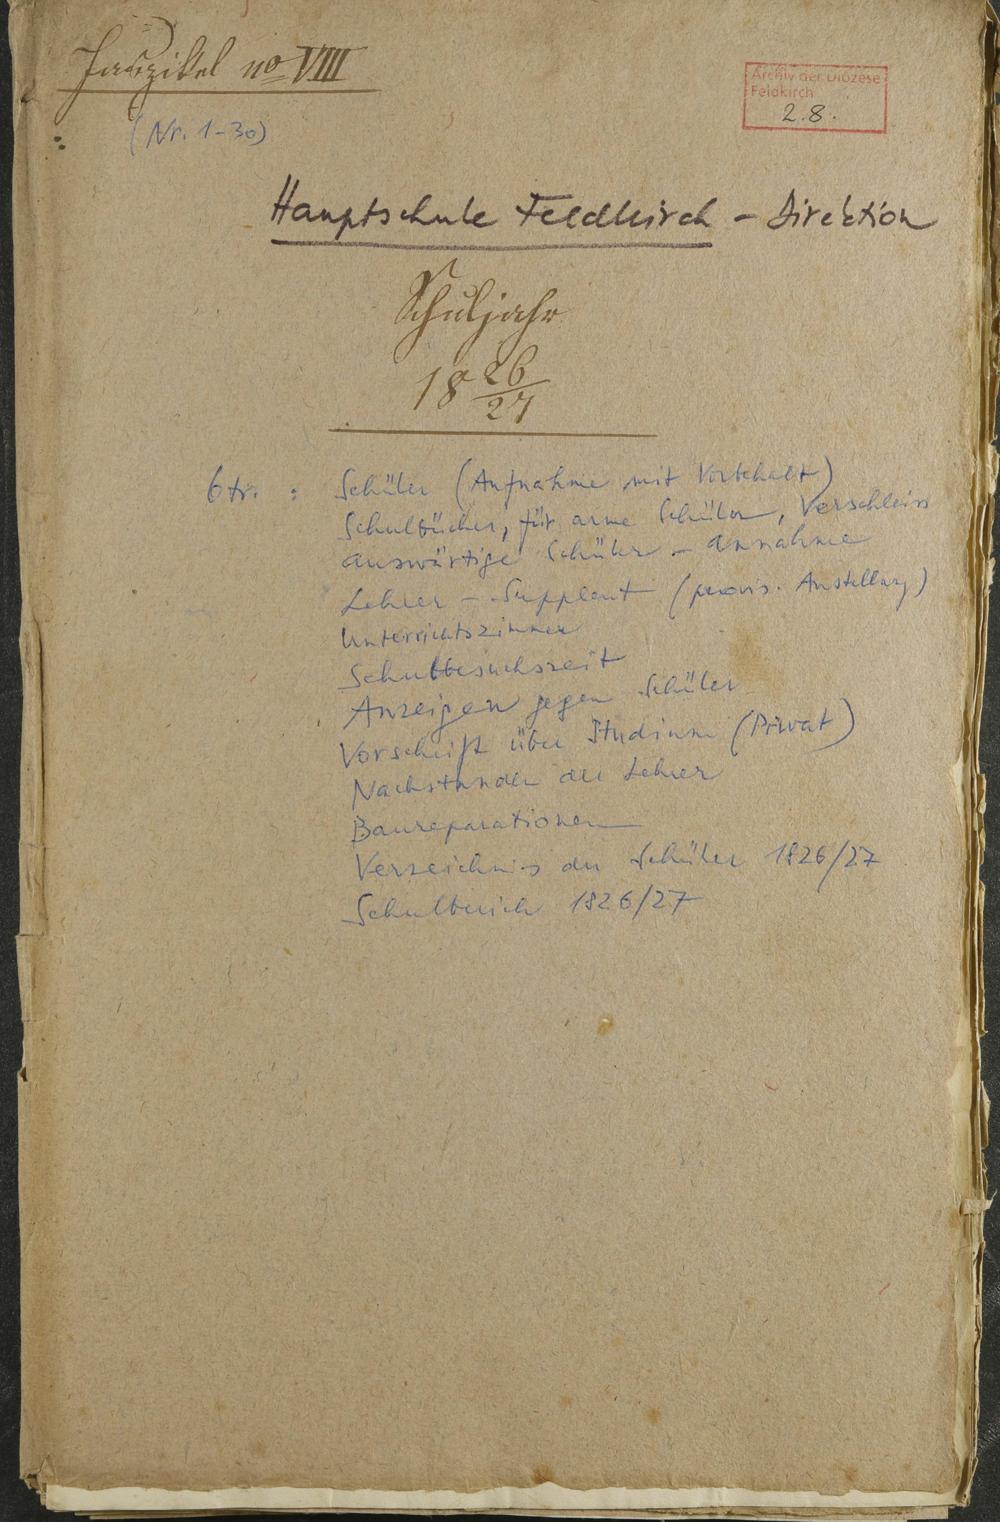 Faszikel no VIII
Archiv der Diözese
Feldkirch
2.8.
(Nr. 1-30)
Hauptschule Feldkirch - Direktion
Schuljahr
18 26/27
btr. : Schüler (Aufnahme mit Vorbehalt)
Schulbücher, für arme Schüler, Verschleiss
auswärtige Schüler - Annahme
Lehrer - Supplent (provis. Anstellung)
Unterrichtszimmer
Schulbesuchszeit
Anzeigen gegen Schüler
Vorschrift über Studium (Privat)
Nachstunden der Lehrer
Baureparationen
Verzeichnis der Schüler 1826/27
Schulbericht 1826/27